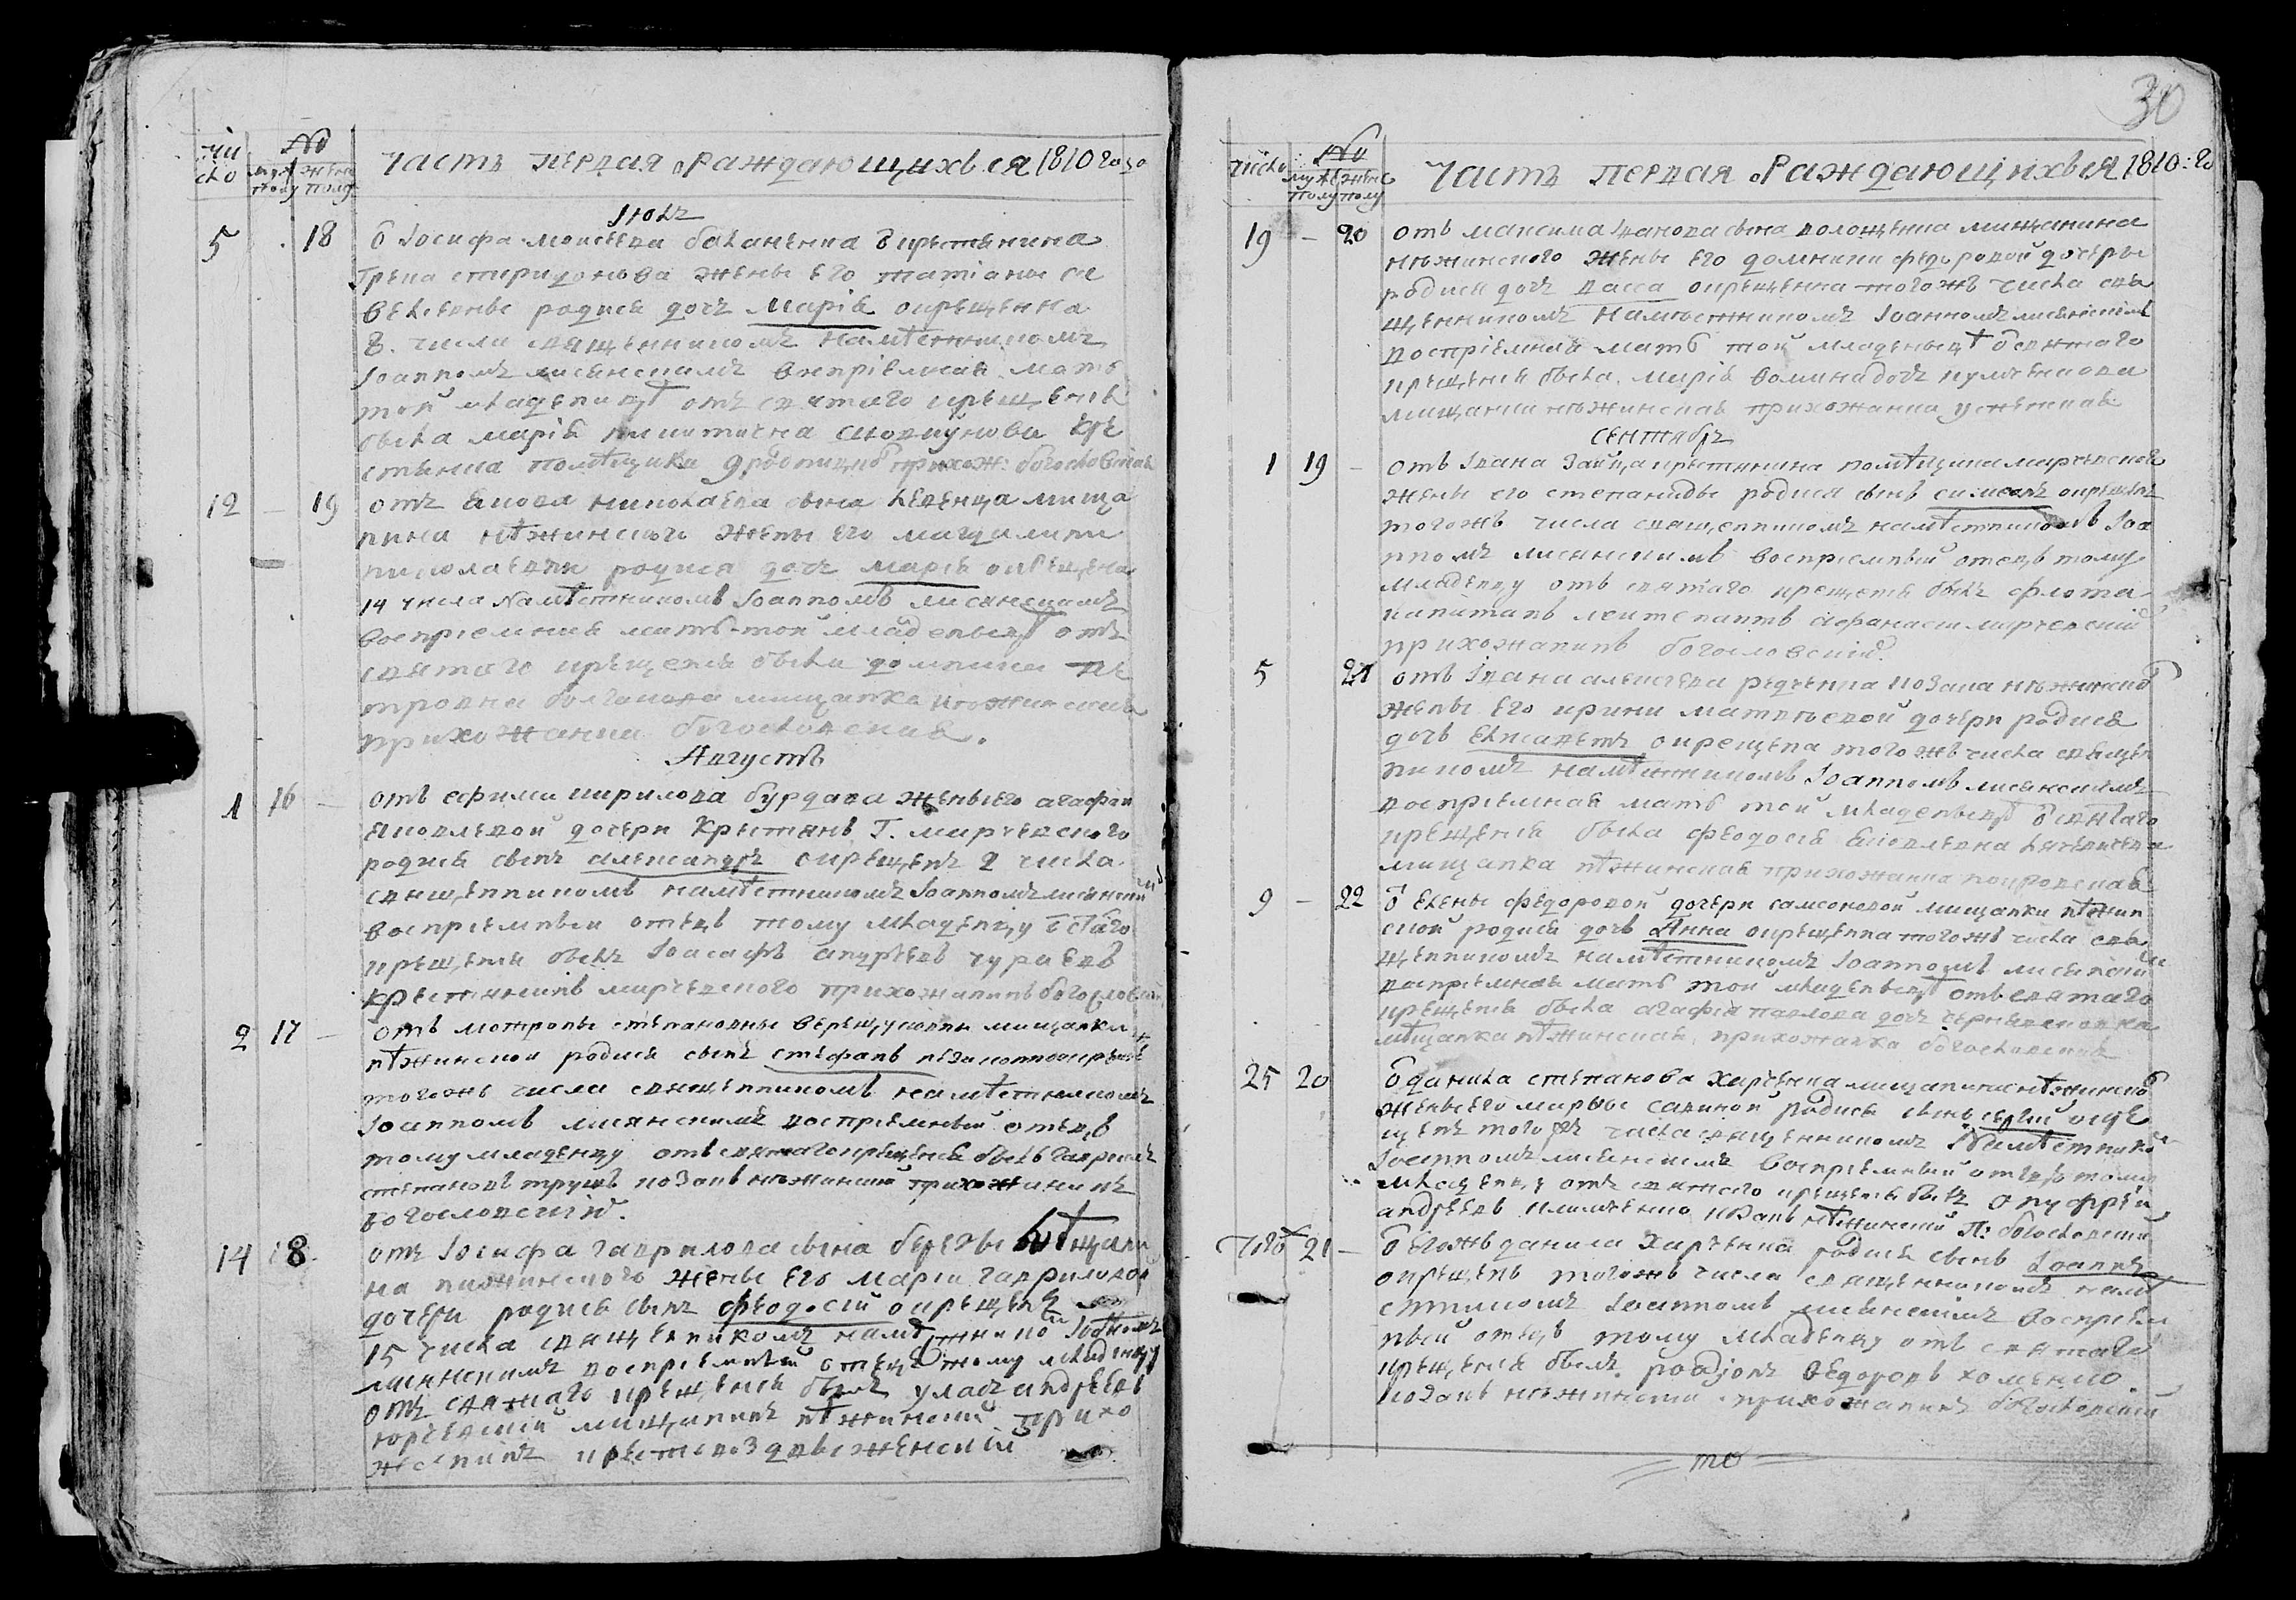 чи
сло
№
муж
полу
жен
полу
Часть первая о Раждающихъся 1810 года
Іюль
5 18 ѿ Іосифа Моисеева крестьянина
Спиридонова жены его татіаны са
вельевны родися дочь Марія окрещенна
8. числа священникомъ намѣстникомъ
Іоанномъ лисянскимъ воспріемная мать
той младеницѣ отъ святаго крещенія
была Марія Никитична кре
стьянка помѣщика прихож: богословская
12 – 19 отъ Якова николаева сына Левенца миша
нина нѣжинского жены его магдалины
николаевны родися дочь марія окрещена
14 числа Намѣстникомъ Іоанномъ лисянскимъ
воспріемная мать той младеницѣ отъ
святаго крещенія была домникия пе
тровна мищанка нѣжинская
прихожанка богословская.
Августъ
1 16 – отъ ефима кирилова бурдака жены его агафии
яковлевой дочери Крестянъ Г. мирчевского
родися сынъ александръ окрещенъ 2 числа
священникомъ намѣстникомъ Іоанномъ лисянски
воспріемный отецъ тому младенцу ѿ стаго
крещенія былъ Іоасафъ андреевъ
крестянинъ мирчевского прихожанинъ богословский
2 17 – отъ мотроны степановны мищанки
нѣжинской родися сынъ стефанъ
тогожъ числа священникомъ намѣстникомъ
Іоанномъ лисянскимъ воспріемный отецъ
тому младенцу отъ святаго крещенія былъ гавриилъ
степановъ трушъ козакъ нѣжинский прихожанинъ
богословский.
14 18 отъ Іосифа гаврилова сына березы мѣщани
на нижинского жены его маріи гавриловой
дочери родися сынъ феодосій окрещенъ
15 числа священникомъ намѣстнико Іоанномъ
лисянскимъ воспріемный отецъ тому младенцу
отъ святаго крещенія былъ уласъ андреевъ
юрчевский мищанинъ нѣжинский прихо
жанинъ крестовоздвыженский
30
число
№
муже
полу
женс
полу
Часть первая о Раждающихъся 1810: го
19 – 20 отъ максима Іванова сына волощенка мищанина
нѣжинского жены его домникии федоровой дочеры
родися дочь васса окрещенна тогожъ числа свя
щенникомъ намѣстникомъ Іоанномъ лисянскимъ
воспріемная мать той младеницѣ ѿ святаго
крещенія была Марія
мищанка нѣжинская прихожанка успенская
Сентябрь
1 19 – отъ Ивана Зайца крестянина помѣщика мирчевского
жены его степаниды родися сынъ окрещенъ
тогожъ числа священникомъ намѣстникомъ Іоа
нномъ лисянскимъ воспріемный отецъ тому
младенцу отъ святаго крещенія былъ флота
капитанъ лейтенантъ афанасий мирчевский
прихожанинъ богословский
5 21 отъ Івана алексеева редченка козака нѣжинского
жены его ирини матвѣевой дочери родися
дочь Елисаветъ окрещена тогожъ числа священ
никомъ намѣстникомъ Іоанномъ лисянскимъ
воспріемная мать той младеницѣ ѿ святаго
крещенія была феодосія Яковлевна
мищанка нѣжинская прихожанка покровская
9 – 22 ѿ Елены федоровой дочери самсоновой мищанки нѣжин
ской родися дочь Анна окрещенна тогожъ числа свя
щенникомъ намѣстникомъ Іоанномъ лисянски
воспріемная мать той младеницѣ отъ святаго
крещенія была агафія павлова дочь
мѣщанка нѣжинская, прихожанка богословская
25 20 ѿ данила степанова Харченка мищанина нѣжинского
жены его марфы савиной родися сынъ сергий окре
щенъ того же числа священникомъ Намѣстнико
Іоанномъ лисянскимъ воспріемный отецъ тому
младенцу отъ святаго крещенія былъ онуфрей
андреевъ козакъ нѣжинский п: богословский
21 – ѿ Егожъ данила Харченка родися сынъ Іоаннъ
окрещенъ тогожъ числа священникомъ намѣ
стникомъ Іоанномъ лисянскимъ воспріем
ный отецъ тому младенцу отъ святаго
крещенія былъ родіонъ Ѳедоровъ хоменко
козакъ нѣжинский прихожанинъ богословский
то